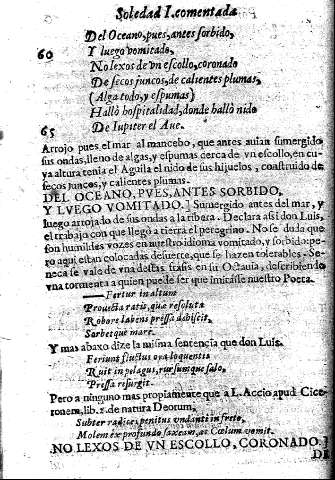 Soledad I. comentada
Del Oceano, pues, antes sorbido,
60 Y luego vomitado,
No lexos de vn escollo, coronado
De secos juncos, de calientes plumas,
(Alga todo, y espumas)
Hallò hospitalidad, donde hallò nido
65 De Iupiter el Aue.
Arrojo pues el mar al mancebo, que antes auian sumergido
sus ondas, lleno de algas, y espumas cerca de vn escollo, en cu-
ya altura tenia el Aguila el nido de sus hijuelos, construido de
secos juncos, y calientes plumas.
DEL OCEANO, PVES, ANTES SORBIDO,
Y LVEGO VOMITADO.] Sumergido antes del mar, y
luego arrojado de sus ondas a la ribera. Declara assi don Luis,
el trabajo con que llegò a tierra el peregrino. No se duda que
son humildes vozes en nuestro idioma vomitado, y sorbido: pe-
ro aqui estan colocadas de suerte, que se hazen tolerables. Se-
neca se vale de vna destas frasis en su Octauia, describiendo
vna tormenta a quien puede ser que imitasse nuestro Poeta.
—Fertur in altum
Prouecta ratis, quæ resoluta
Robore labens pressa dehiscit,
Sorbetque mare.
Y mas abaxo dize la misma sentencia que don Luis.
Feriunt fluctus ora loquentis
Ruit in pelagus, rursumque salo,
Pressa resurgit.
Pero a ninguno mas propiamente que a L. Accio apud Cice-
ronem, lib. 2. de natura Deorum,
Subter radices penitus vndanti in freto,
Molem ex profundo saxeam, ac Cœlum vomit.
NO LEXOS DE VN ESCOLLO, CORONADO.]
DE